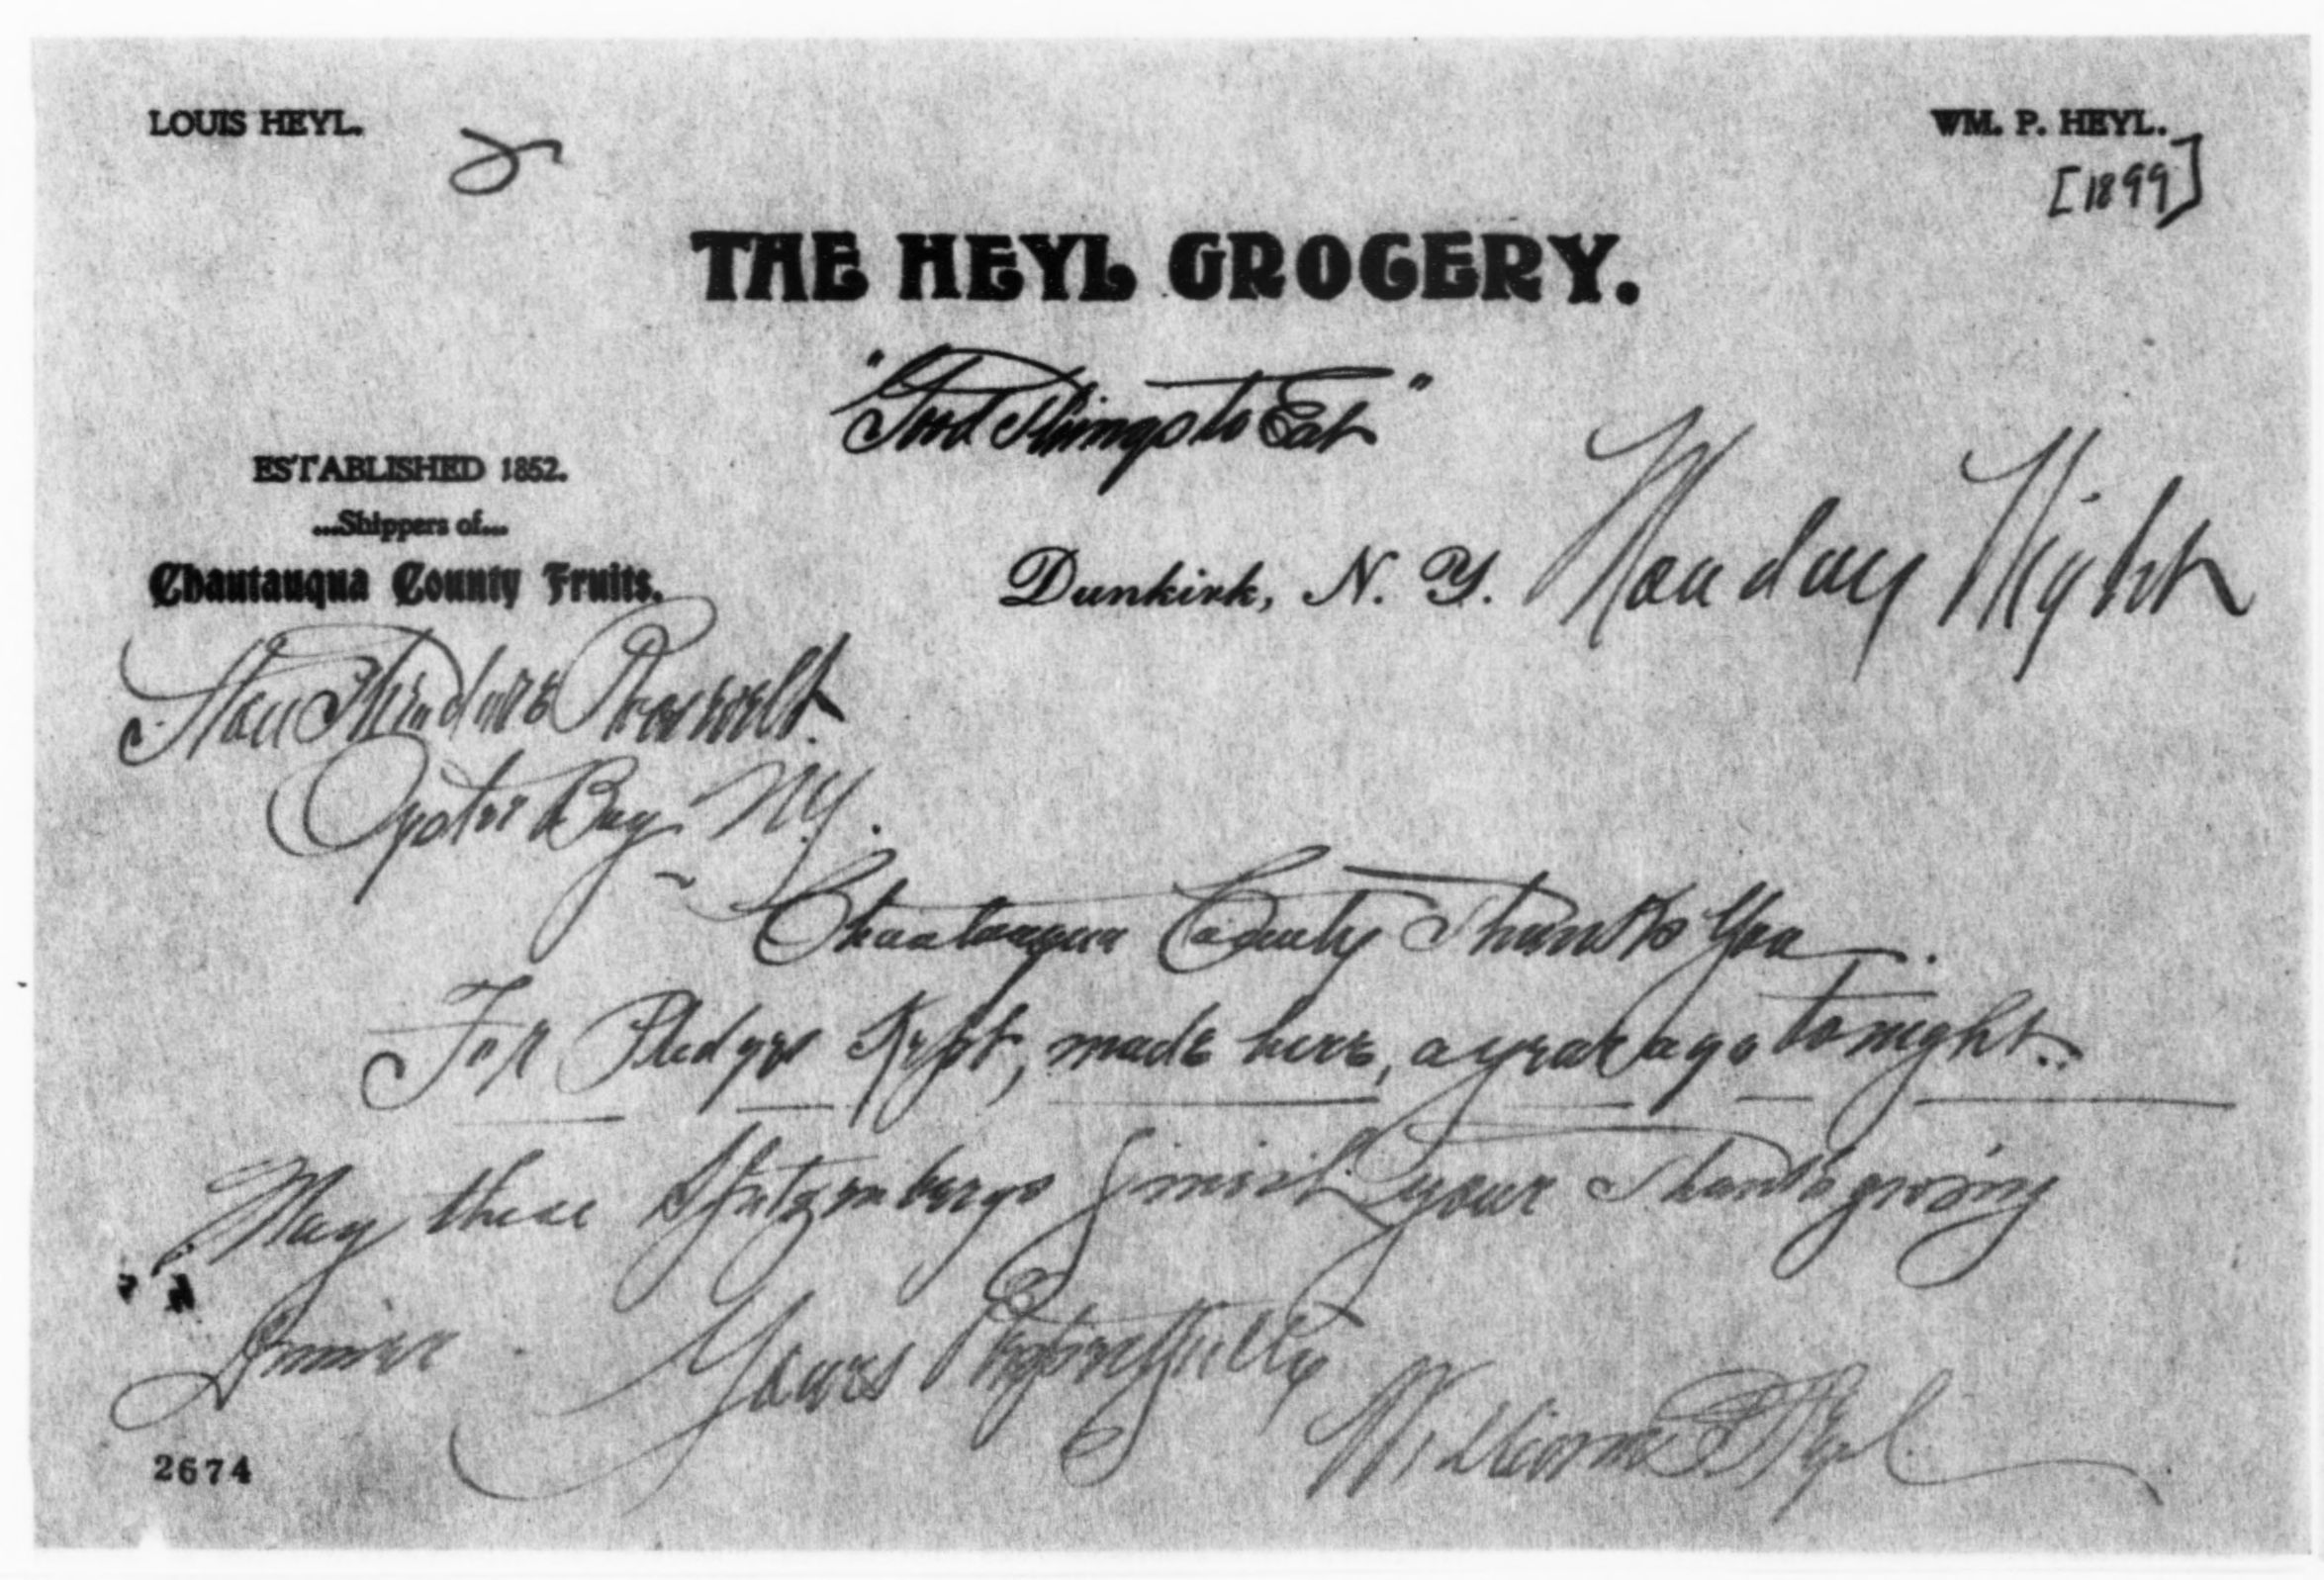 LOUIS HEYL.
WM. P. HEYL.
[1899]
THE HEYL GROCERY.
"Good Things to Eat"
ESTABLISHED 1852.
...Shippers of...
Chautauqua County Fruits.
Dunkirk, N. Y. Monday Night
Hon Theodore Roosevelt.
Oyster Bay N.Y.
Chautauqua County Thanks You.
For Pledges Kept, made here, a year ago tonight.
May these Spitzenbergs finish your Thanksgiving
Dinner.
Yours Respectfully
William P Heyl
2674